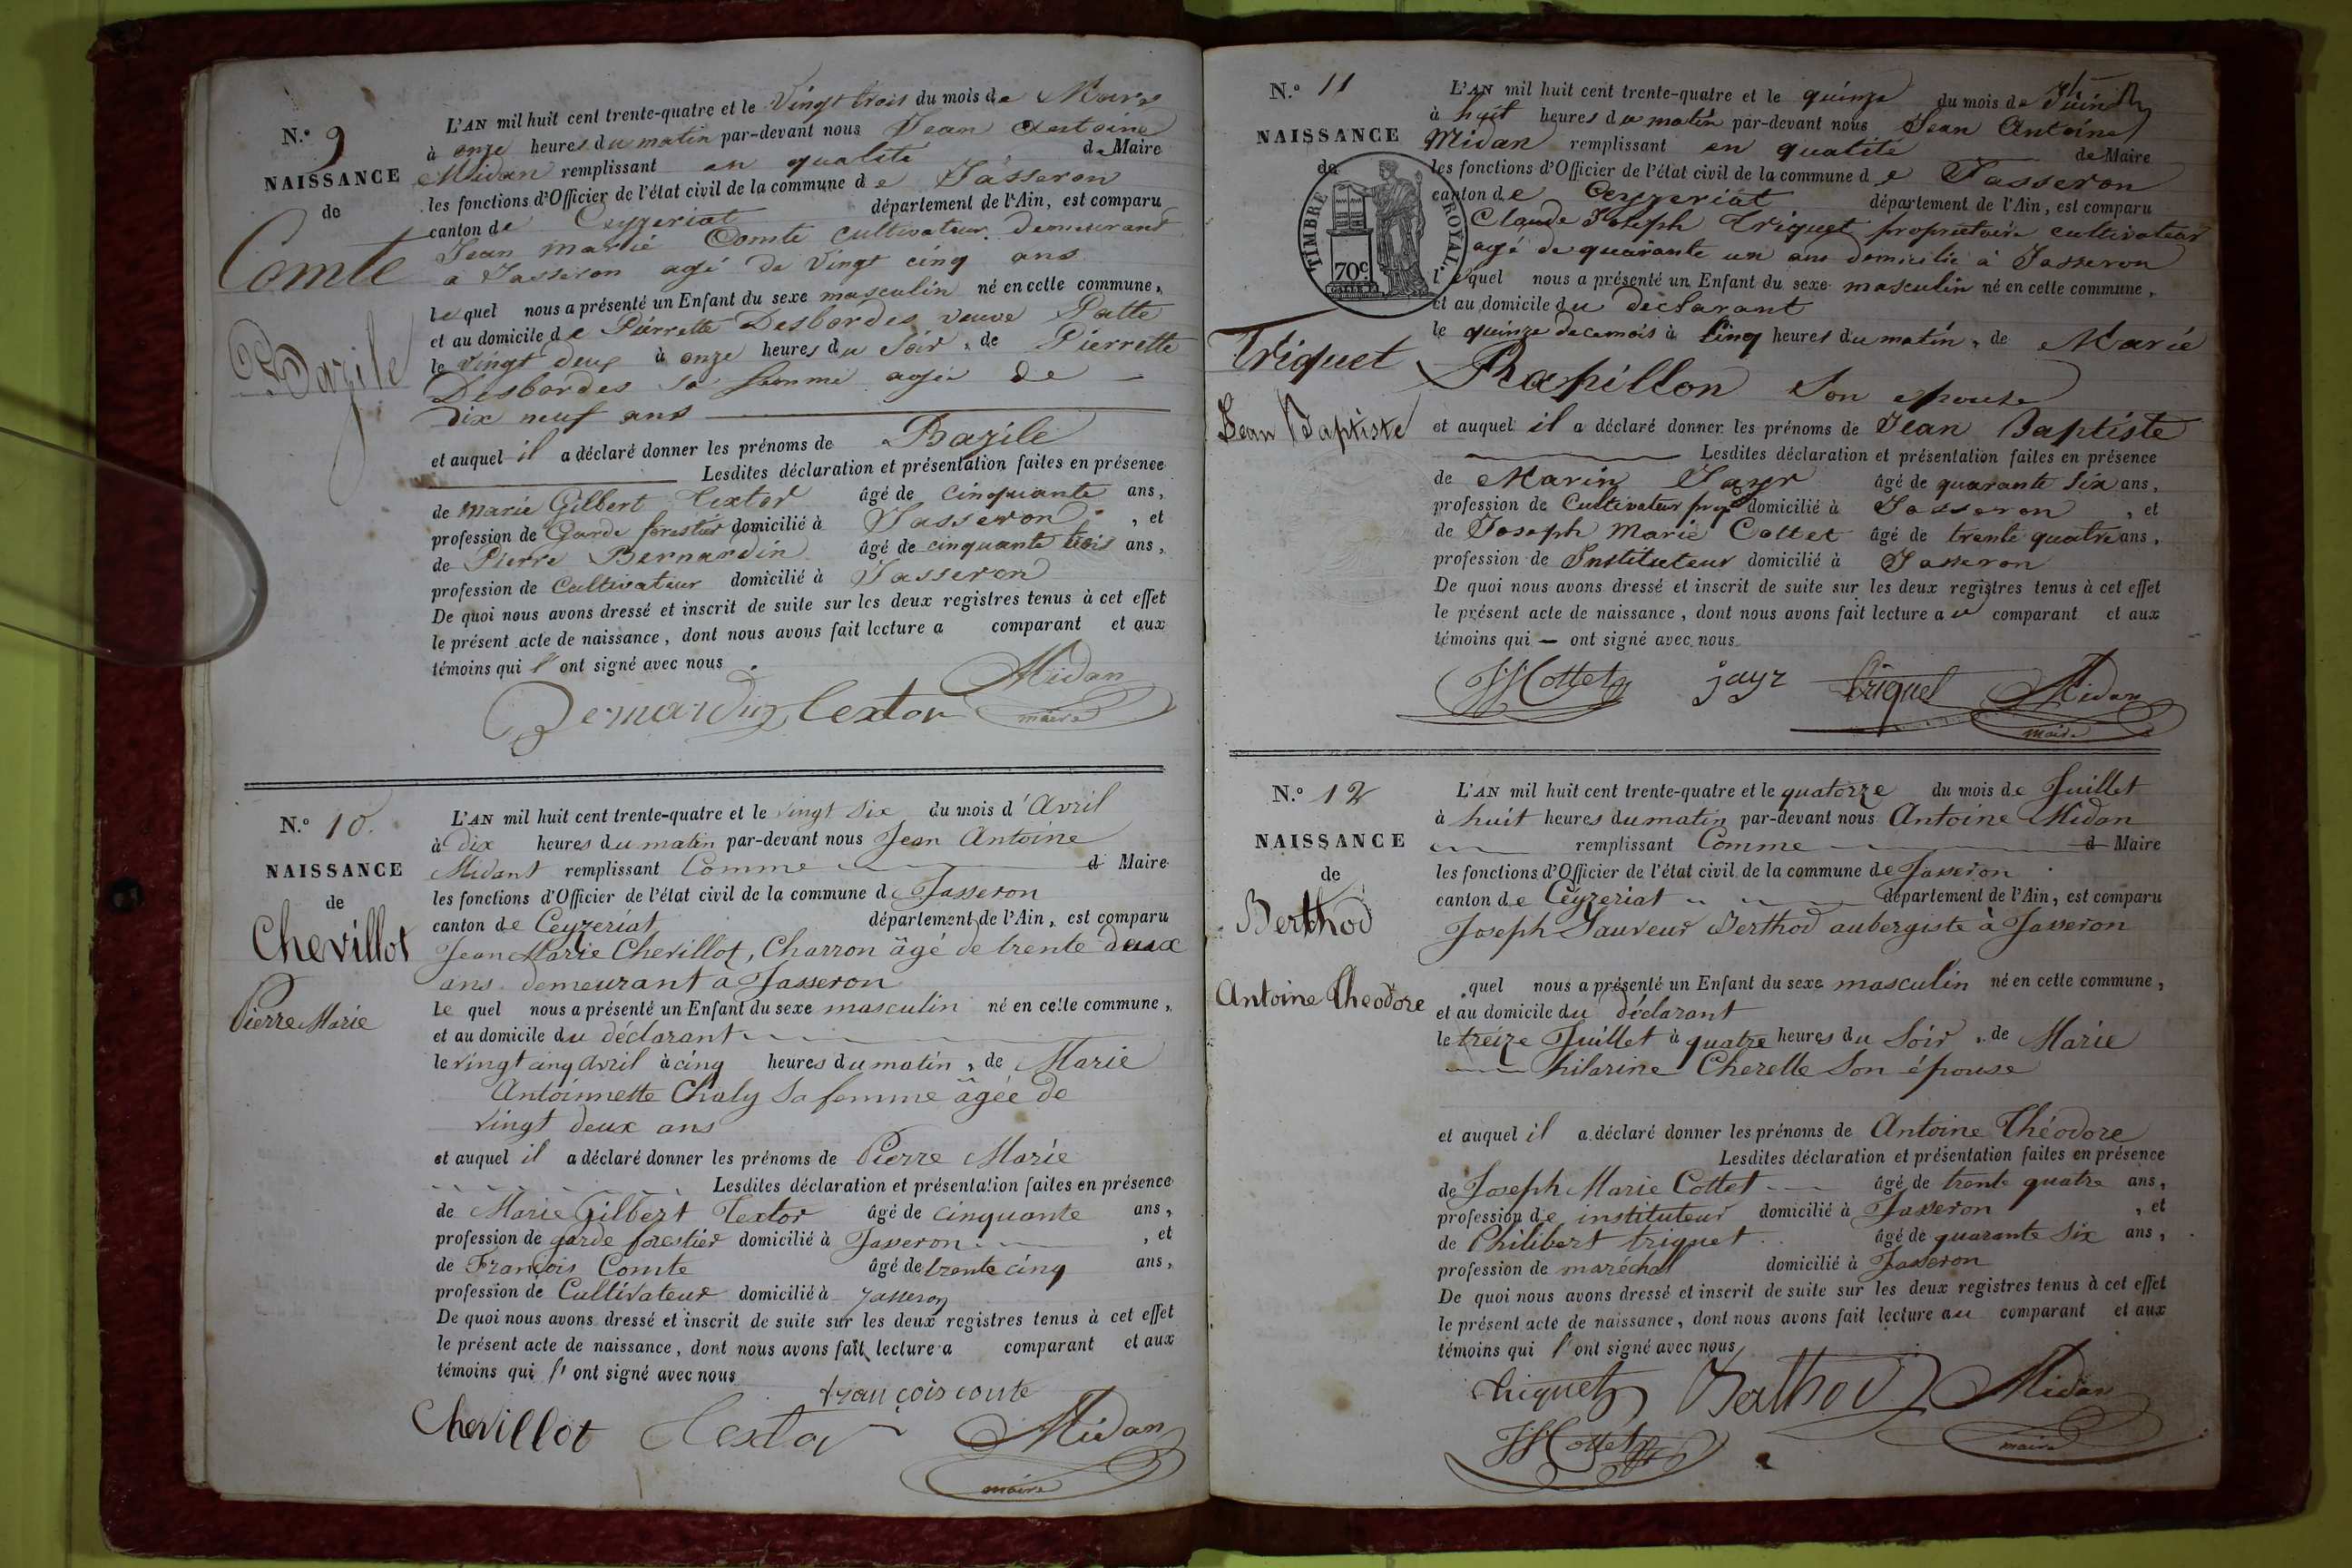 N.º 9
NAISSANCE
de
Comte
Bazile
L'AN mil huit cent trente-quatre et le Vingt trois du mois de Mars
à onze heures du matin par-devant nous Jean Antoine
Midan remplissant en qualité de Maire
les fonctions d'Officier de l'état civil de la commune de Jasseron
canton de Ceyzeriat département de l'Ain, est comparu
Jean Marie Comte cultivateur demeurant
a Jasseron agé de Vingt cinq ans
lequel nous a présenté un Enfant du sexe masculin né en cette commune,
et au domicile de Pierrette Desbordes veuve Patte
le Vingt deux à onze heures du Soir, de Pierrette
Desbordes sa femme agée de
Dix neuf ans
et auquel il a déclaré donner les prénoms de Bazile
Lesdites déclaration et présentation faites en présence
de marie Gilbert Textor âgé de cinquante ans,
profession de Garde forestier domicilié à Jasseron, et
de Pierre Bernardin âgé de cinquante trois ans,
profession de Cultivateur domicilié à Jasseron
De quoi nous avons dressé et inscrit de suite sur les deux registres tenus à cet effet
le présent acte de naissance, dont nous avons fait lecture a comparant et aux
témoins qui l' ont signé avec nous.
Bernardin Textor Midan
maire
N.º 10.
NAISSANCE
de
Chevillot
Pierre Marie
L'AN mil huit cent trente-quatre et le vingt six du mois d'Avril
à Dix heures du matin par-devant nous Jean Antoine
Midant remplissant Comme d Maire
les fonctions d'Officier de l'état civil de la commune d Jasseron
canton de Ceyzeriat département de l'Ain, est comparu
Jean Marie Chevillot, Charron âgé de trente deux
ans demeurant a Jasseron
Le quel nous a présenté un Enfant du sexe masculin né en cette commune,
et au domicile du déclarant
le vingt cinq avril à cinq heures du matin, de Marie
Antoinnette Chaly Sa femme âgée de
vingt deux ans
et auquel il a déclaré donner les prénoms de Pierre Marie
Lesdites déclaration et présentation faites en présence
de Marie Gilbert Textor âgé de cinquante ans,
profession de garde forestier domicilié à Jasseron, et
de François Comte âgé de trente cinq ans,
profession de Cultivateur domicilié à Jasseron
De quoi nous avons dressé et inscrit de suite sur les deux registres tenus à cet effet
le présent acte de naissance, dont nous avons fait lecture a comparant et aux
témoins qui l' ont signé avec nous
françois comte
Chevillot Textor Midan
maire
N.º 11
NAISSANCE
de
TIMBRE ROYAL.
70c.
Triquet
Jean Baptiste
L'AN mil huit cent trente-quatre et le quinze du mois de Juin
à huit heures du matin par-devant nous Jean Antoine
Midan remplissant en qualité de Maire
les fonctions d'Officier de l'état civil de la commune de Jasseron
canton de Ceyzeriat département de l'Ain, est comparu
Claude Joseph Triquet proprietaire cultivateur
agé de quarante un ans domicilié à Jasseron
lequel nous a présenté un Enfant du sexe masculin né en cette commune,
et au domicile du déclarant
le quinze de ce mois à Cinq heures du matin, de Marie
Rapillon Son epouse
et auquel il a déclaré donner les prénoms de Jean Baptiste
Lesdites déclaration et présentation faites en présence
de Marin Jayr âgé de quarante Six ans,
profession de Cultivateur domicilié à Jasseron, et
de Joseph Marie Cottet âgé de trente quatre ans,
profession de Instituteur domicilié à Jasseron
De quoi nous avons dressé et inscrit de suite sur les deux registres tenus à cet effet
le présent acte de naissance, dont nous avons fait lecture au comparant et aux
témoins qui — ont signé avec nous
JM Cottet jayr triquet Midan
maire
N.º 12
NAISSANCE
de
Berthod
Antoine Theodore
L'AN mil huit cent trente-quatre et le quatorze du mois de Juillet
à huit heures du matin par-devant nous Antoine Midan
remplissant Comme d Maire
les fonctions d'Officier de l'état civil de la commune de Jasseron
canton de Ceyzeriat département de l'Ain, est comparu
Joseph Sauveur Berthod aubergiste à Jasseron
quel nous a présenté un Enfant du sexe masculin né en cette commune,
et au domicile du déclarant
le treize Juillet à quatre heures du Soir, de Marie
hilarine Cherelle Son épouse
et auquel il a déclaré donner les prénoms de Antoine Théodore
Lesdites déclaration et présentation faites en présence
de Joseph Marie Cottet âgé de trente quatre ans,
profession de instituteur domicilié à Jasseron, et
de Philibert triquet âgé de quarante Six ans,
profession de maréchal domicilié à Jasseron
De quoi nous avons dressé et inscrit de suite sur les deux registres tenus à cet effet
le présent acte de naissance, dont nous avons fait lecture au comparant et aux
témoins qui l' ont signé avec nous
triquet Berthod Midan
JM Cottet maire